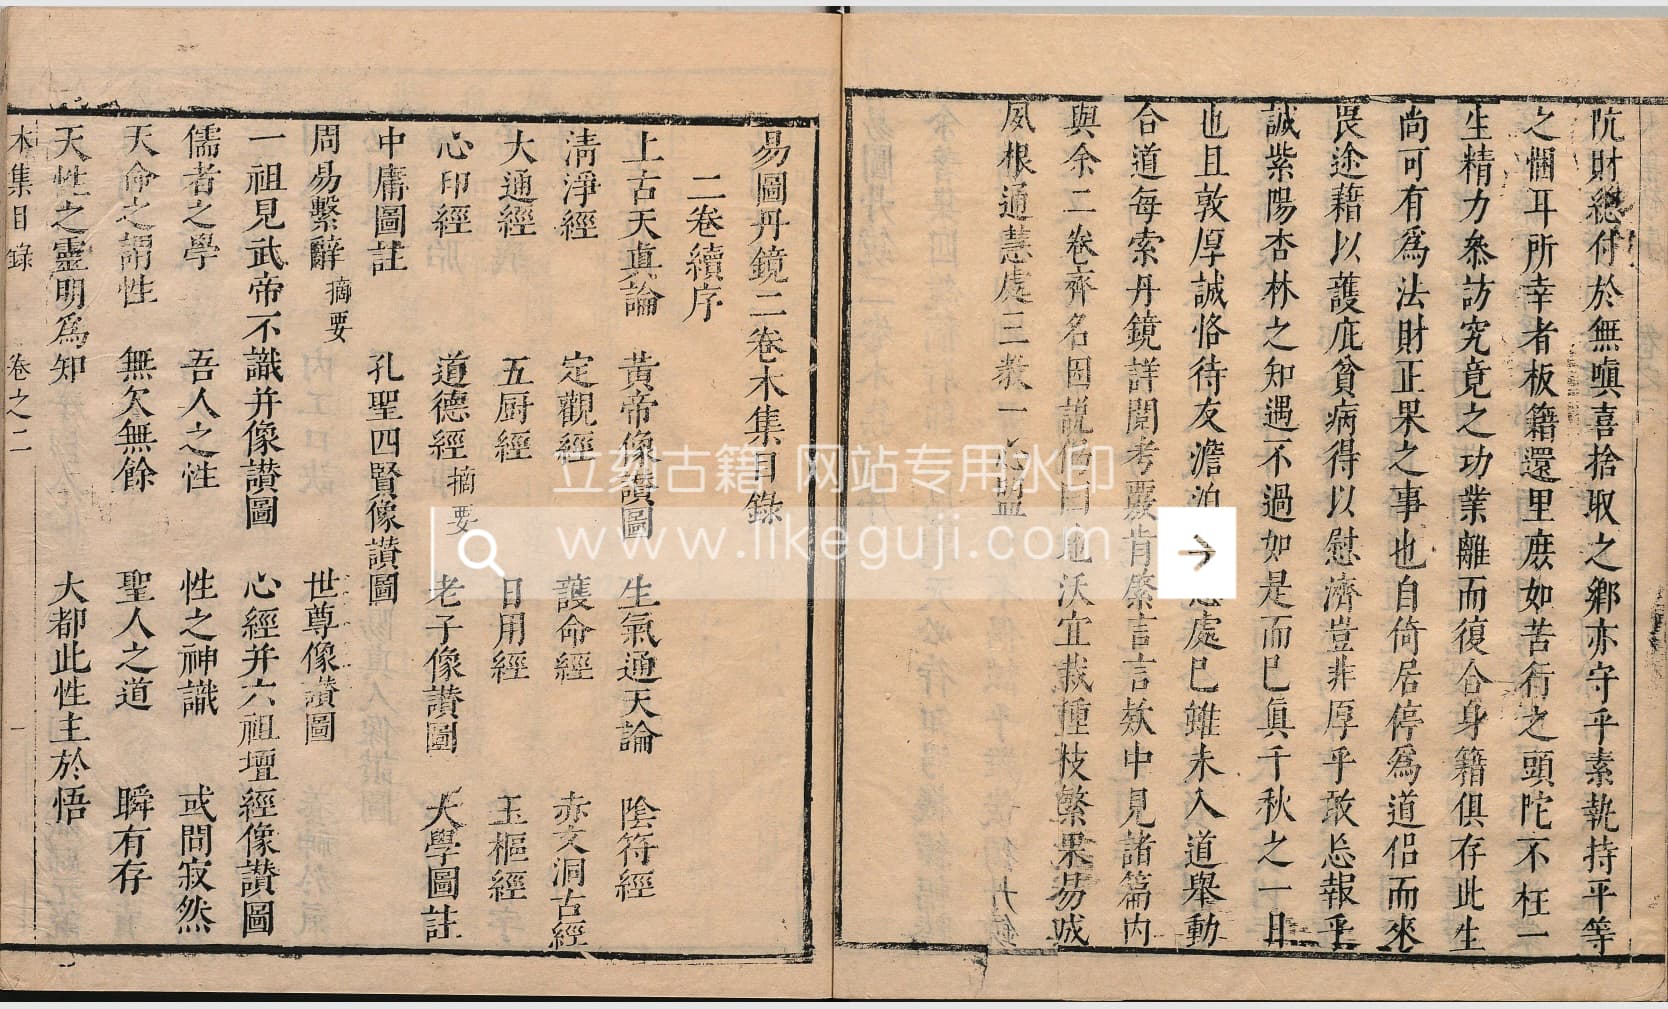 阬財總付於無嗔喜捨取之鄉亦守乎素執持平等
之悃耳所幸者板籍還里庶如苦行之頭陀不枉一
生精力叅訪究竟之功業離而復合身籍俱存此生
尚可有爲法財正果之事也自倚居停爲道侣而來
畏途藉以護庇貧病得以慰濟豈非厚乎敢忘報乎
誠紫陽杏林之知遇不過如是而已眞千秋之一日
也且敦厚誠恪待友澹泊處已雖未入道舉動
合道每索丹鏡詳閱考覈肯綮言言欵中見諸篇内
與余二卷齊名因説偈曰地沃宜栽種枝繁果易成
夙根通慧處三教一心盟
易圖丹鏡二卷木集目錄
二卷續序
上古天真論 黃帝像讃圖 生氣通天論 陰符經
清淨經 定觀經 護命經 赤文洞古經
大通經 五厨經 日用經 玉樞經
心印經 道德經摘要 老子像讃圖 大學圖註
中庸圖註 孔聖四賢像讃圖
周易繫辭摘要 世尊像讃圖
一祖見武帝不識并像讃圖 心經并六祖壇經像讃圖
儒者之學 吾人之性 性之神識 或問寂然
天命之謂性 無欠無餘 聖人之道 瞬有存
天性之靈明爲知 大都此性主於悟
木集目錄 卷之二 一
立刻古籍 网站专用水印
www.likeguji.com